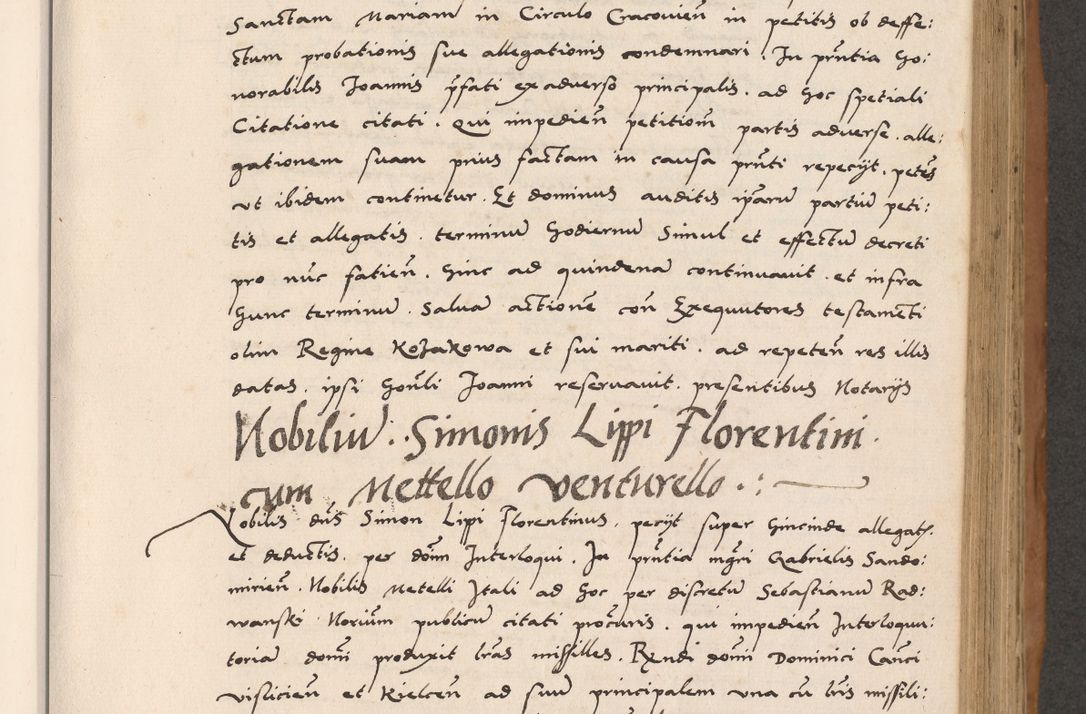 Sanctam Mariam in Circulo Cracovien̄ in petitis ob deffe:
ctum probationis sue allegationis condemnari. In pn̄tia ho:
norabilis Joannis p̄fati ex adverso principalis. ad hoc spetiali
Citatione citati. Qui impedien̄ petitiom̄ partis adverse. alle:
gationem suam prius factam in causa pn̄ti repecijt. petēs
ut ibidem continetur. Et dominus auditis ip̄arū partiū peti:
tis et allegatis. terminū hodiernū Simul et effectū decreti
pro nūc fatien̄. hinc ad quindenā continuavit. et infra
hunc terminū. Salva actionē con̄ Exequutores testamēti
olim Regine Kozakowa et sui mariti. ad repeten̄ res illis
datas. ipsi hon̄li Joanni reservavit. presentibus Notarijs
Nobiliū. Simonis Lippi Florentini.
cum Nettello venturello.:
Nobilis dn̄s Simon Lippi Florentinus. pecijt super hincinde allegatʼ.
et deductis. per dom̄ Interloqui. In pn̄tia mgr̄i Gabrielis Sando:
mirien̄. Nobilis Netelli Itali ad hoc per discretū Sebastianū Rad:
wanski Noriūm publicū citati procūris. qui impedien̄ Interloquu:
toriā dom̄i produxit lr̄as missilles. Rn̄di dom̄i Dominici Canci
vislicien̄ et Kielcen̄ ad suū principalem una cū lr̄is missili: